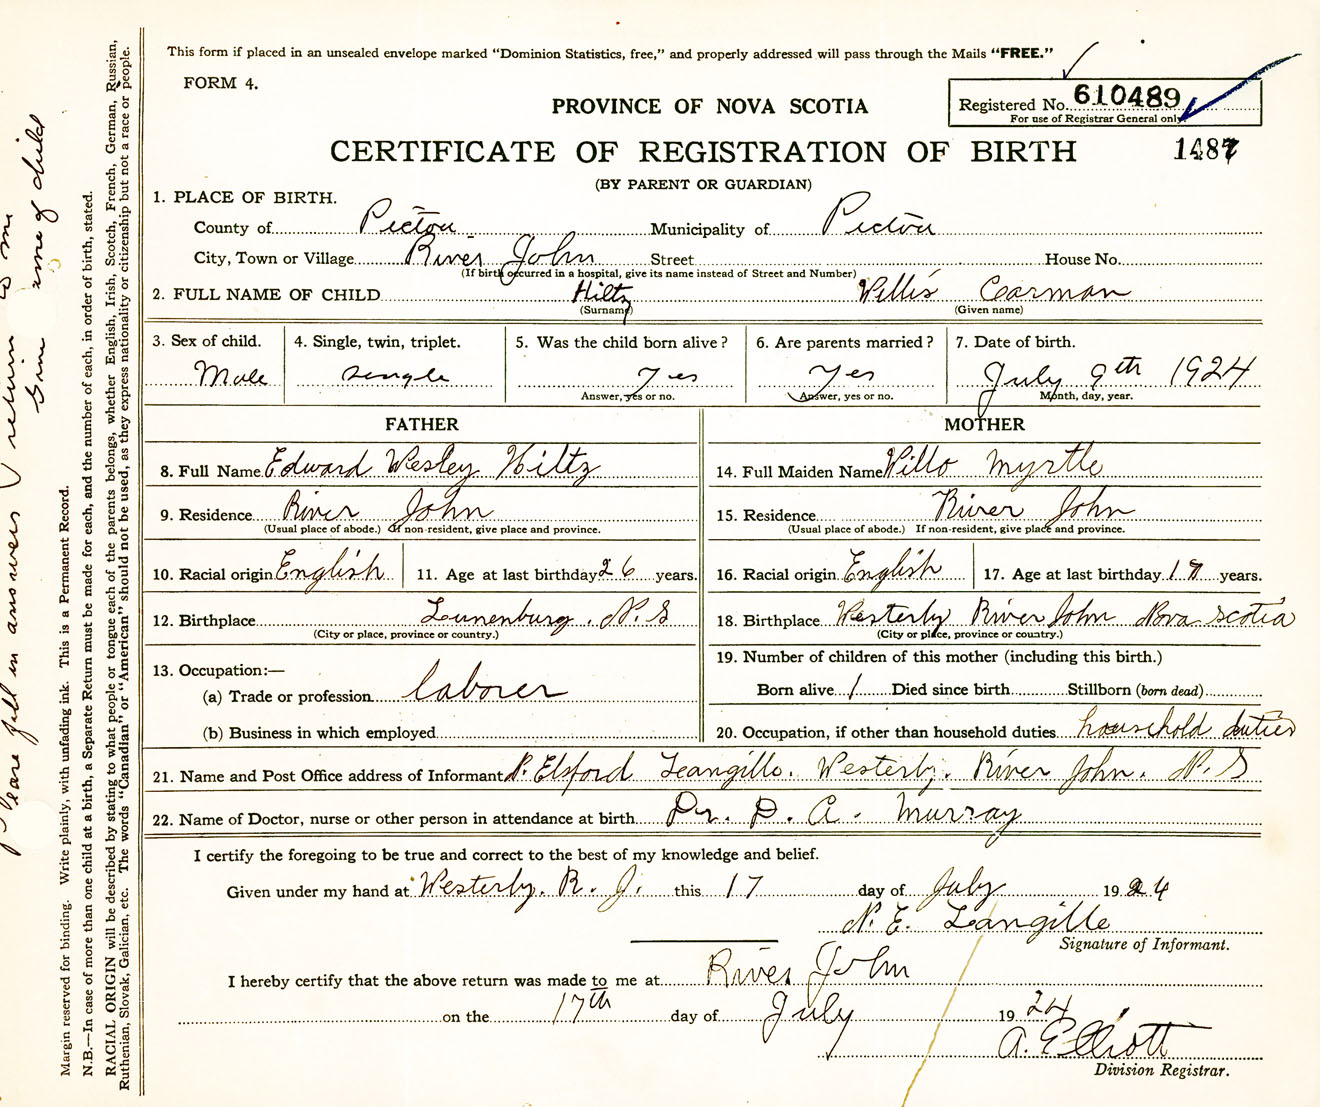 This form if placed in an unsealed envelope marked "Dominion Statistics, free," and properly addressed will pass through the Mails "FREE."
FORM 4.
PROVINCE OF NOVA SCOTIA
Registered No. 610489
For use of Registrar General only
CERTIFICATE OF REGISTRATION OF BIRTH
1487
(BY PARENT OR GUARDIAN)
1. PLACE OF BIRTH.
County of Pictou Municipality of Pictou
City, Town or Village River John Street House No.
(If birth occurred in a hospital, give its name instead of Street and Number)
2. FULL NAME OF CHILD Hiltz Willis Carman
(Surname) (Given name)
3. Sex of child. 4. Single, twin, triplet. 5. Was the child born alive? 6. Are parents married? 7. Date of birth.
Male single Yes Yes July 9th 1924
Answer, yes or no. Answer, yes or no. Month, day, year.
FATHER MOTHER
8. Full Name Edward Wesley Hiltz 14. Full Maiden Name Willo Myrtle
9. Residence River John 15. Residence River John
(Usual place of abode.) If non-resident, give place and province. (Usual place of abode.) If non-resident, give place and province.
10. Racial origin English 11. Age at last birthday 26 years. 16. Racial origin English 17. Age at last birthday years.
12. Birthplace Lunenburg. N. S 18. Birthplace Westerly River John Nova Scotia
(City or place, province or country.) (City or place, province or country.)
13. Occupation:— 19. Number of children of this mother (including this birth.)
(a) Trade or profession laborer Born alive 1 Died since birth Stillborn (born dead)
(b) Business in which employed 20. Occupation, if other than household duties household duties
21. Name and Post Office address of Informant N. Elsford Leangille. Westerly. River John. N. S
22. Name of Doctor, nurse or other person in attendance at birth Dr. D. A. Murray
I certify the foregoing to be true and correct to the best of my knowledge and belief.
Given under my hand at Westerly. R. J. this 17 day of July 1924
N. E. Langille
Signature of Informant.
I hereby certify that the above return was made to me at River John
on the 17th day of July 1924
A. Elliott
Division Registrar.
Margin reserved for binding. Write plainly, with unfading ink. This is a Permanent Record.
N.B.—In case of more than one child at a birth, a Separate Return must be made for each, and the number of each, in order of birth, stated.
RACIAL ORIGIN will be described by stating to what people or tongue each of the parents belongs, whether English, Irish, Scotch, French, German, Russian,
Ruthenian, Slovak, Galician, etc. The words "Canadian" or "American" should not be used, as they express nationality or citizenship but not a race or people.
fill in answers return to me
name of child